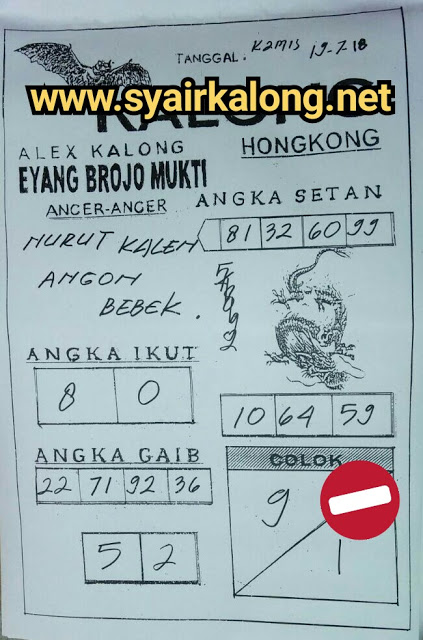 TANGGAL. KAMIS 19-7-18
www.syairkalong.net
KALONG
ALEX KALONG
HONGKONG
EYANG BROJO MUKTI
ANGKA SETAN
ANCER-ANCER
81 32 60 99
NURUT KALEM
ANGON
BEBEK.
ANGKA IKUT
8 0
10 64 59
ANGKA GAIB
COLOK
22 71 92 36
9
1
5 2